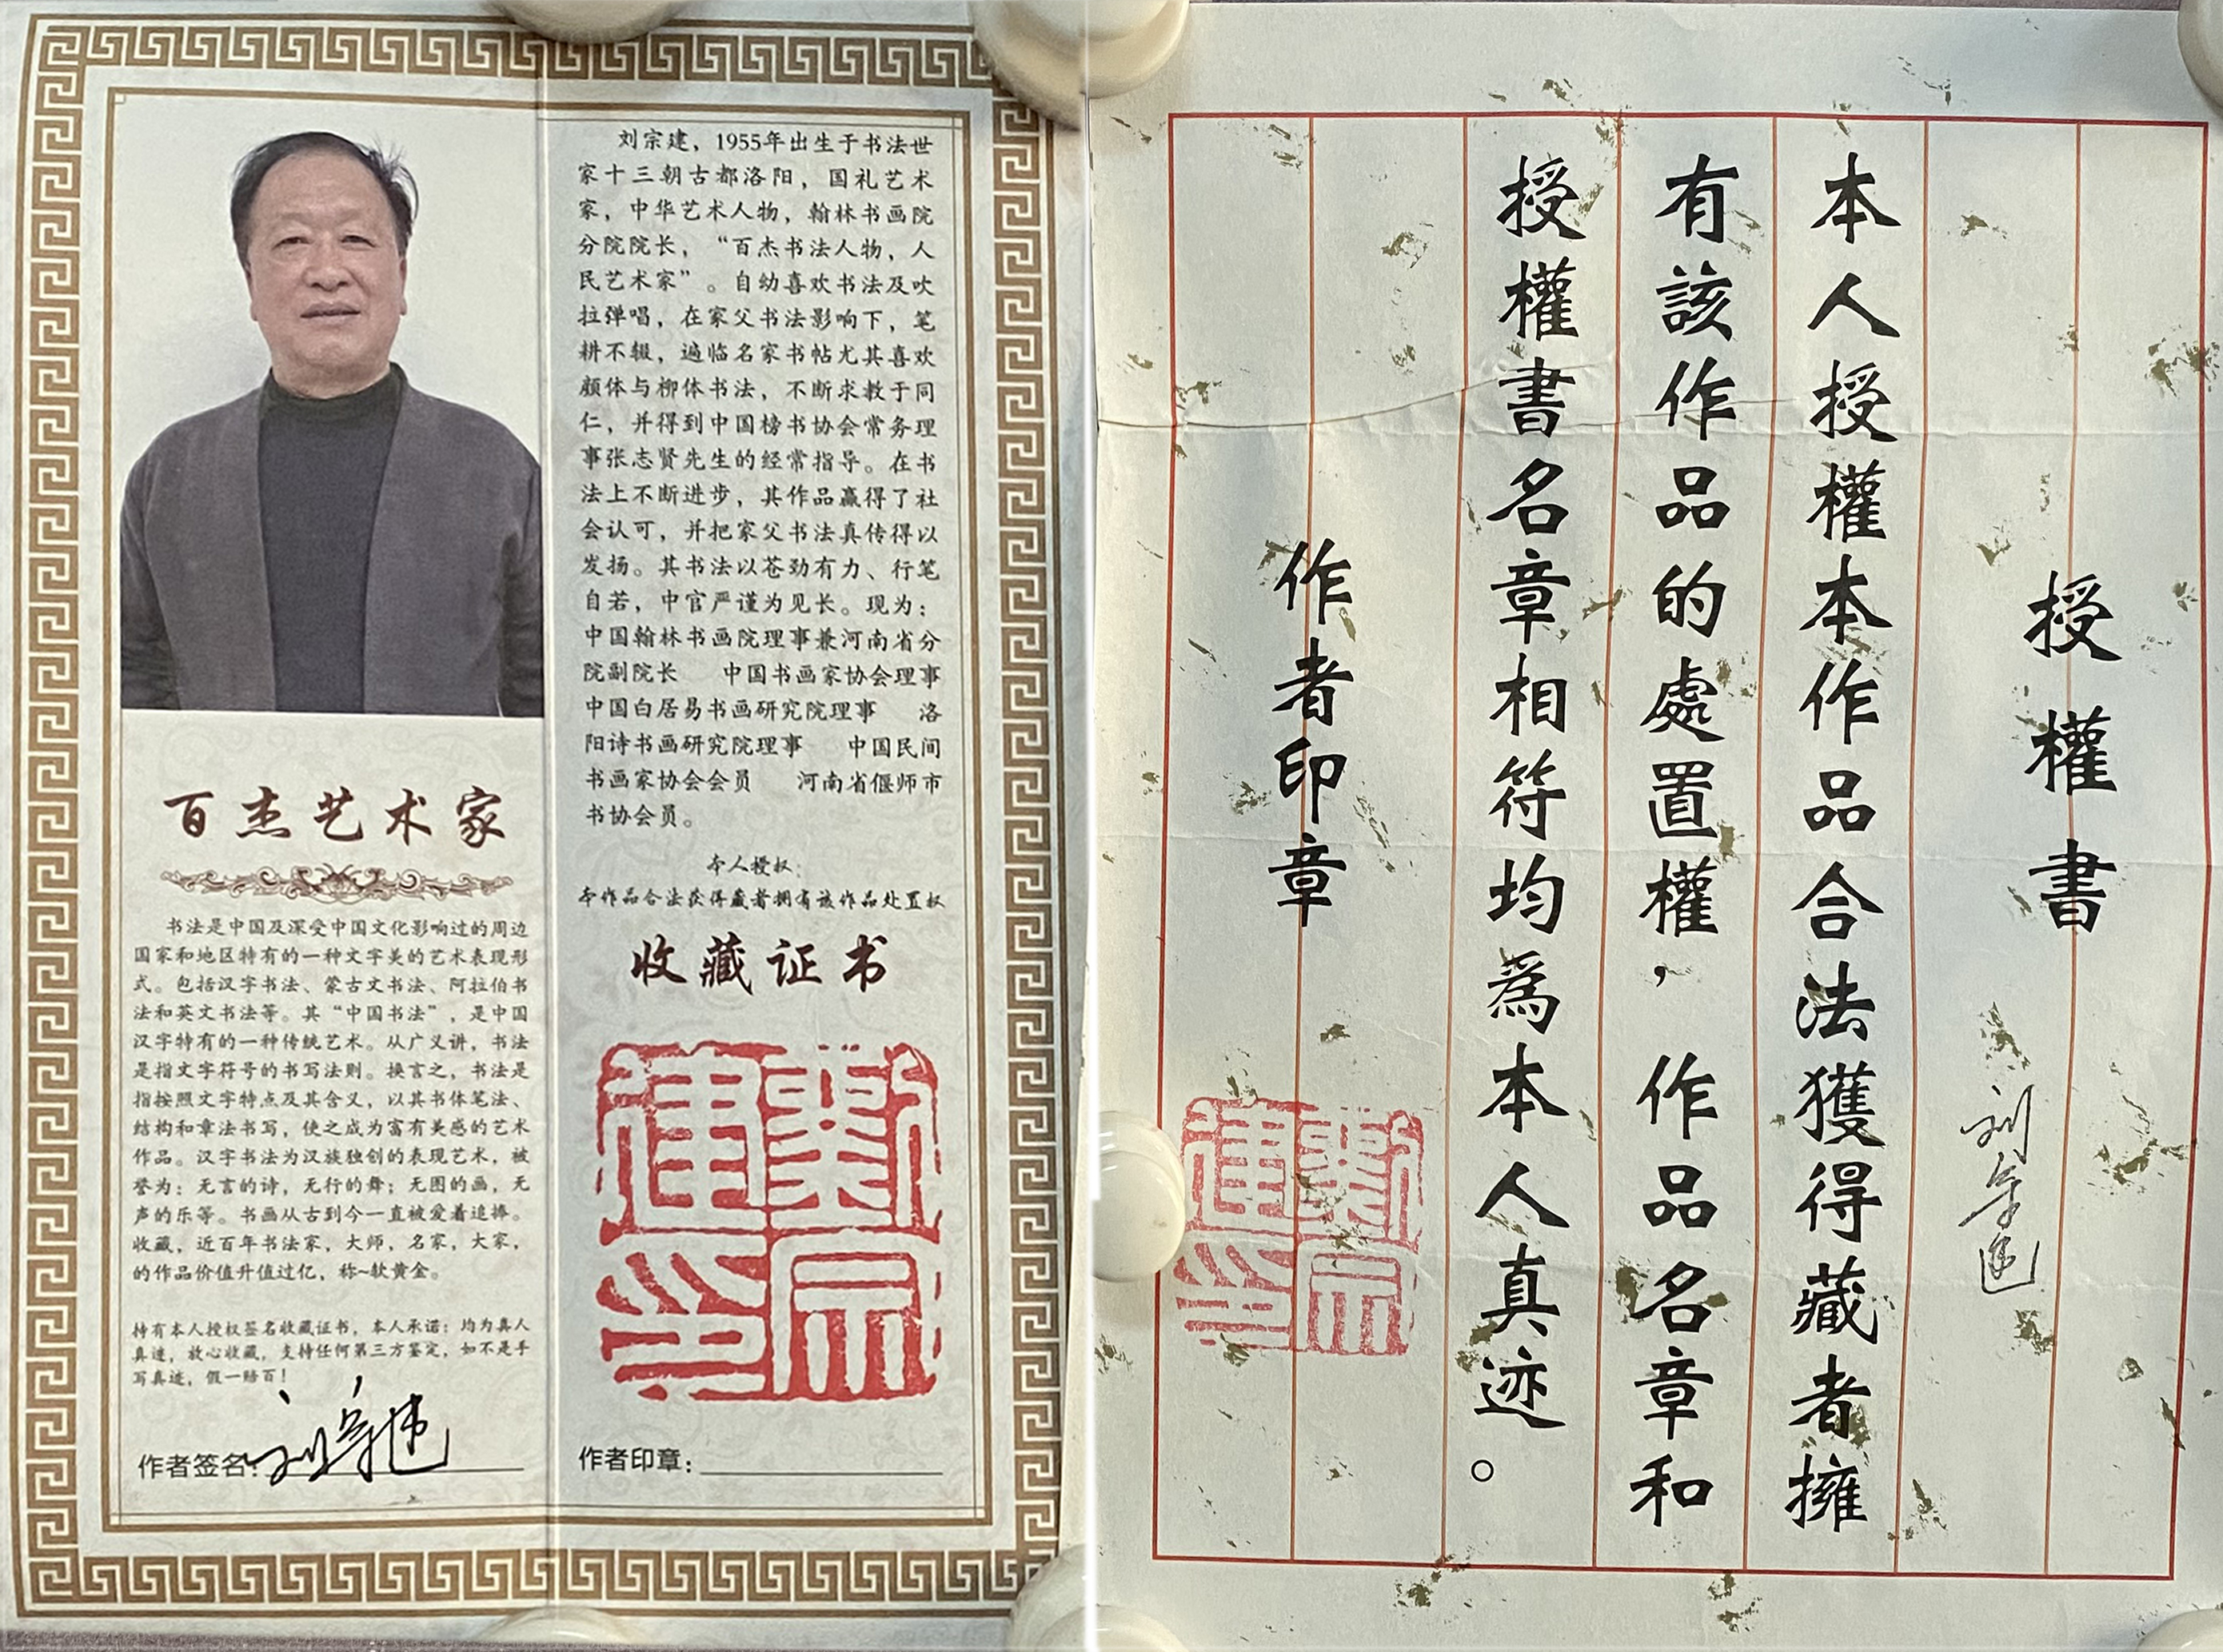 百杰艺术家
书法是中国及深受中国文化影响过的周边
国家和地区特有的一种文字美的艺术表现形
式。包括汉字书法、蒙古文书法、阿拉伯书
法和英文书法等。其“中国书法”，是中国
汉字特有的一种传统艺术。从广义讲，书法
是指文字符号的书写法则。换言之，书法是
指按照文字特点及其含义，以其书体笔法、
结构和章法书写，使之成为富有美感的艺术
作品。汉字书法为汉族独创的表现艺术，被
誉为：无言的诗，无行的舞；无图的画，无
声的乐等。书画从古到今一直被爱着追捧。
收藏，近百年书法家，大师，名家，大家，
的作品价值升值过亿，称~软黄金。
持有本人授权签名收藏证书，本人承诺：均为真人
真迹，放心收藏，支持任何第三方鉴定，如不是手
写真迹，假一赔百！
作者签名：刘宗建
刘宗建，1955年出生于书法世
家十三朝古都洛阳，国礼艺术
家，中华艺术人物，翰林书画院
分院院长，“百杰书法人物，人
民艺术家”。自幼喜欢书法及吹
拉弹唱，在家父书法影响下，笔
耕不辍，遍临名家书帖尤其喜欢
颜体与柳体书法，不断求教于同
仁，并得到中国榜书协会常务理
事张志贤先生的经常指导。在书
法上不断进步，其作品赢得了社
会认可，并把家父书法真传得以
发扬。其书法以苍劲有力、行笔
自若，中官严谨为见长。现为：
中国翰林书画院理事兼河南省分
院副院长 中国书画家协会理事
中国白居易书画研究院理事 洛
阳诗书画研究院理事 中国民间
书画家协会会员 河南省偃师市
书协会员。
本人授权：
本作品合法获得藏者拥有该作品处置权
收藏证书
劉宗建印
作者印章：
授權書
刘宗建
本人授權本作品合法獲得藏者擁
有該作品的處置權，作品名章和
授權書名章相符均為本人真迹。
作者印章
劉宗建印